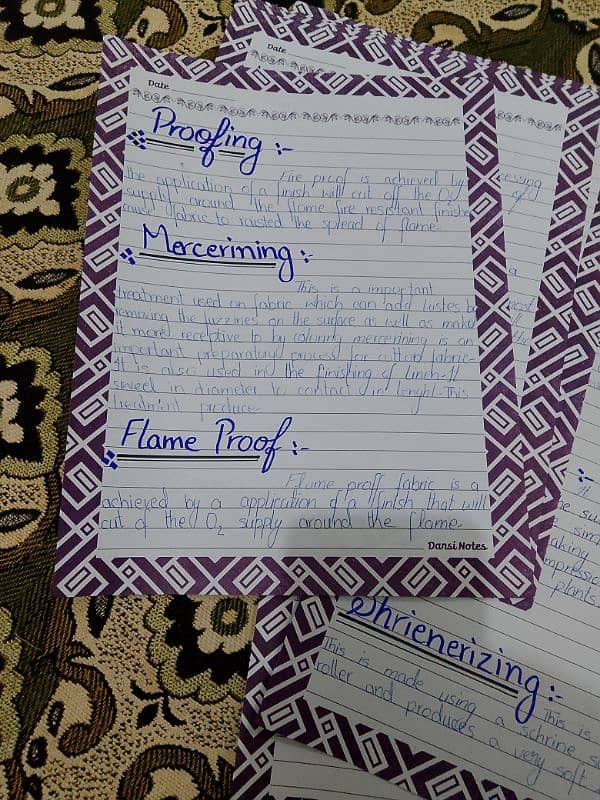 Date
Date
Proofing :-
Fire proof is achieved by
the application of a finish will cut off the O2
supply around the flame fire resistant finishe
cause fabric to the spread of flame
Mercerining :-
This is a important
treatment used on fabric which can add b
removing the on the surface as well as make
it more receptive to by mercerining is an
important process for cotton fabric
It is also used in the finishing of
in diameter to contact in lenght. This
produce
Flame Proof :-
Flame proff fabric is a
achieved by a application of a finish that will
cut of the O2 supply around the flame
Dansi Notes
essing
of
a
:-
It
aking
impressio
plants
Shrienerizing :-
This is
This is made using a schrine
roller and produces a very soft